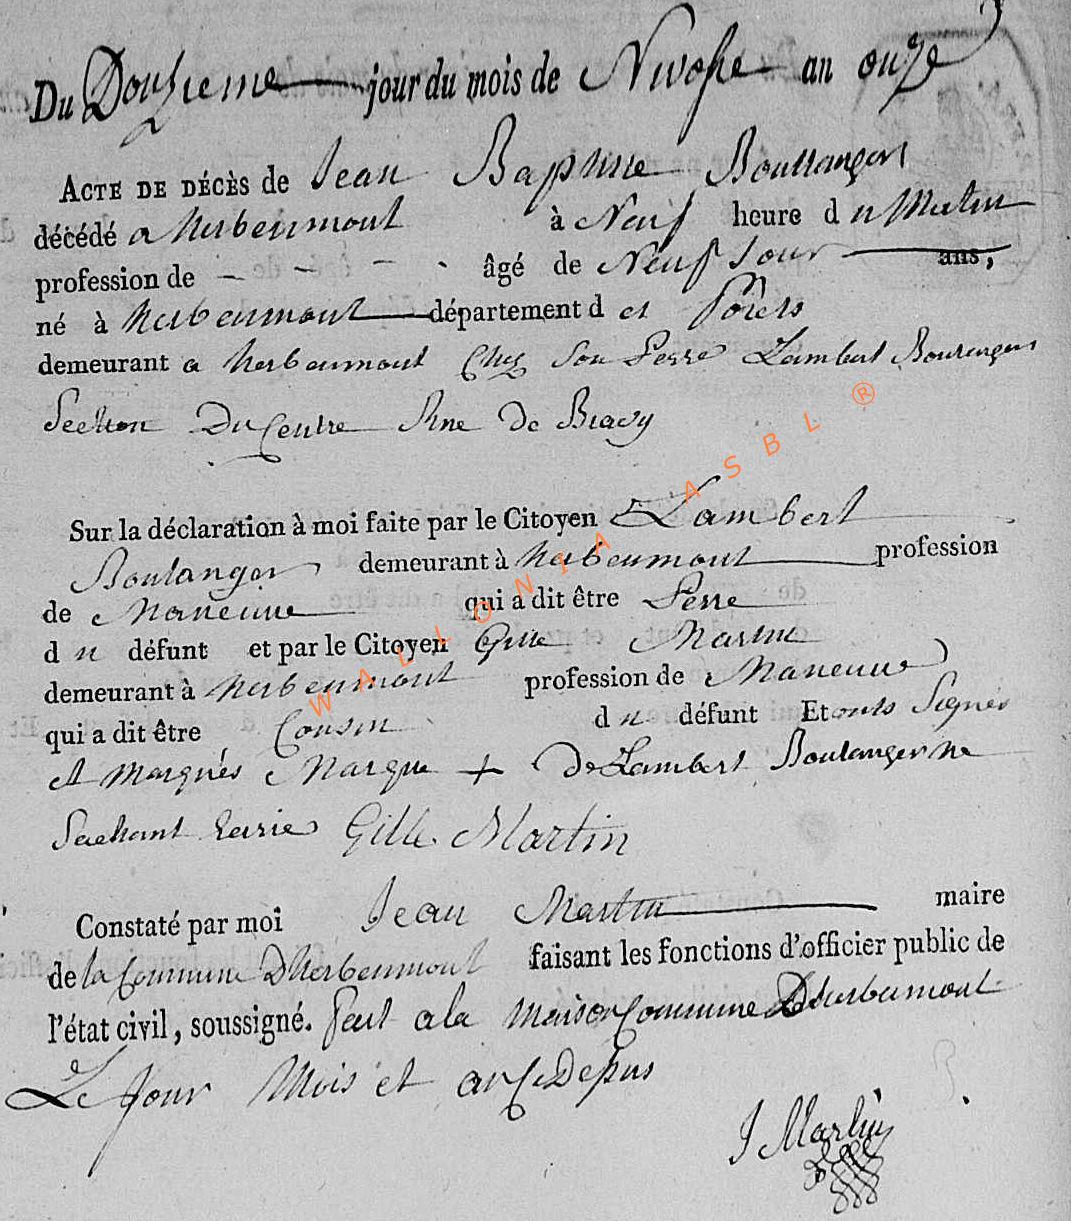 Du Douzieme jour du mois de Nivose an onze
ACTE DE DÉCÈS de Jean Baptiste Boullanger
décédé a herbeumont à Neuf heure du Matin
profession de - - - - âgé de Neuf Jour ans,
né à herbeumont département des forets
demeurant a herbeumont Chez Son Perre Lambert Bourenger
Section Du Centre Rue De Bravy
Sur la déclaration à moi faite par le Citoyen Lambert
Boulanger demeurant à herbeumont profession
de Maneuve qui a dit être Perre
du défunt et par le Citoyen Gille Martin
demeurant à herbeumont profession de Maneuve
qui a dit être Cousin du défunt Et onts Signés
et Marqués Marque + De Lambert Boulanger ne
Sachant Ecrire Gille Martin
Constaté par moi Jean Martin maire
de la Commune Dherbeumont faisant les fonctions d'officier public de
l'état civil, soussigné. fait a la Maison Commune Dherbeumont
Le Jour Mois et an Ci Desus
J Martin
WALLONIA ASBL ®